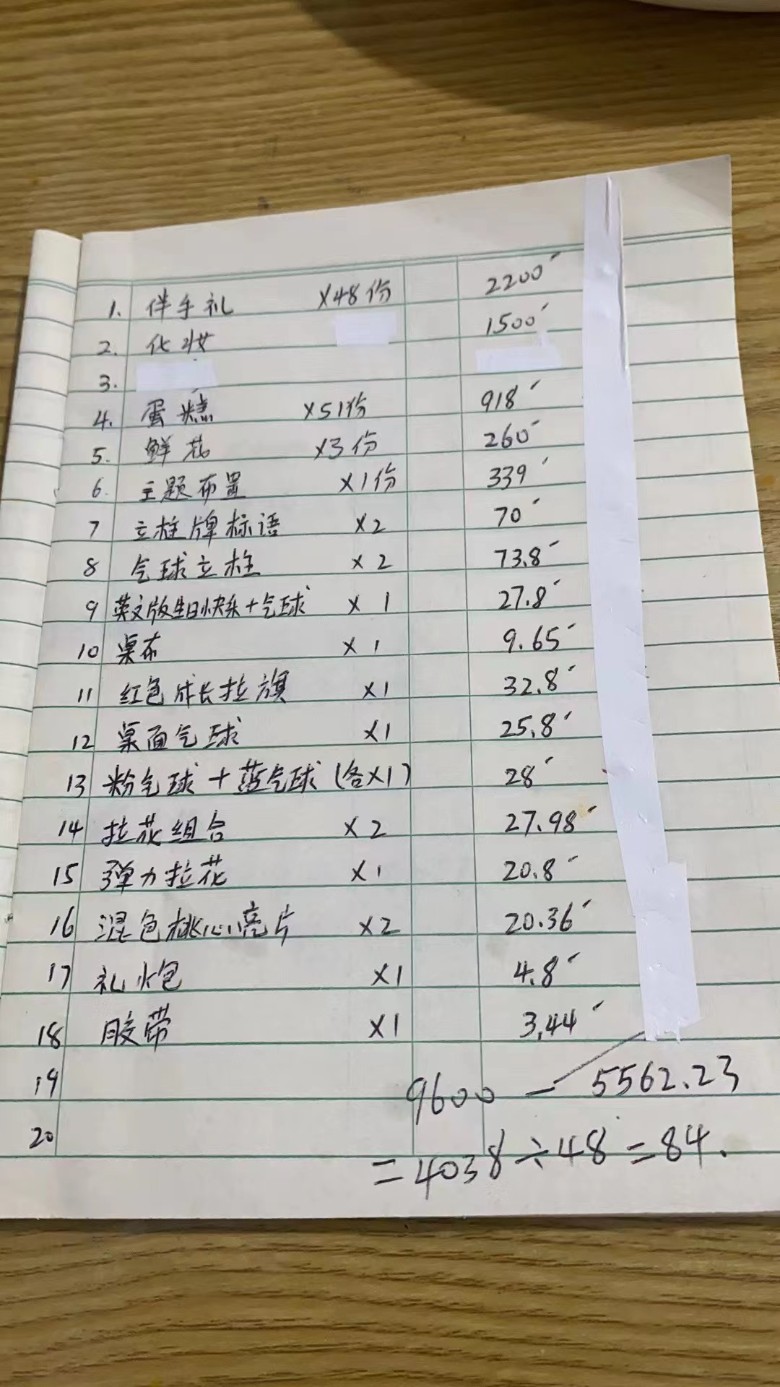 1. 伴手礼 ×48份 2200
2. 化妆 1500
3.
4. 蛋糕 ×51份 918
5. 鲜花 ×3份 260
6. 主题布置 ×1份 339
7 立柱牌标语 ×2 70
8 气球立柱 ×2 73.8
9 英文版生日快乐+气球 ×1 27.8
10 桌布 ×1 9.65
11 红色成长拉旗 ×1 32.8
12 桌面气球 ×1 25.8
13 粉气球+蓝气球(各×1) 28
14 拉花组合 ×2 27.98
15 弹力拉花 ×1 20.8
16 混色桃心亮片 ×2 20.36
17 礼炮 ×1 4.8
18 胶带 ×1 3.44
19 9600 — 5562.23
20 =4038÷48=84.